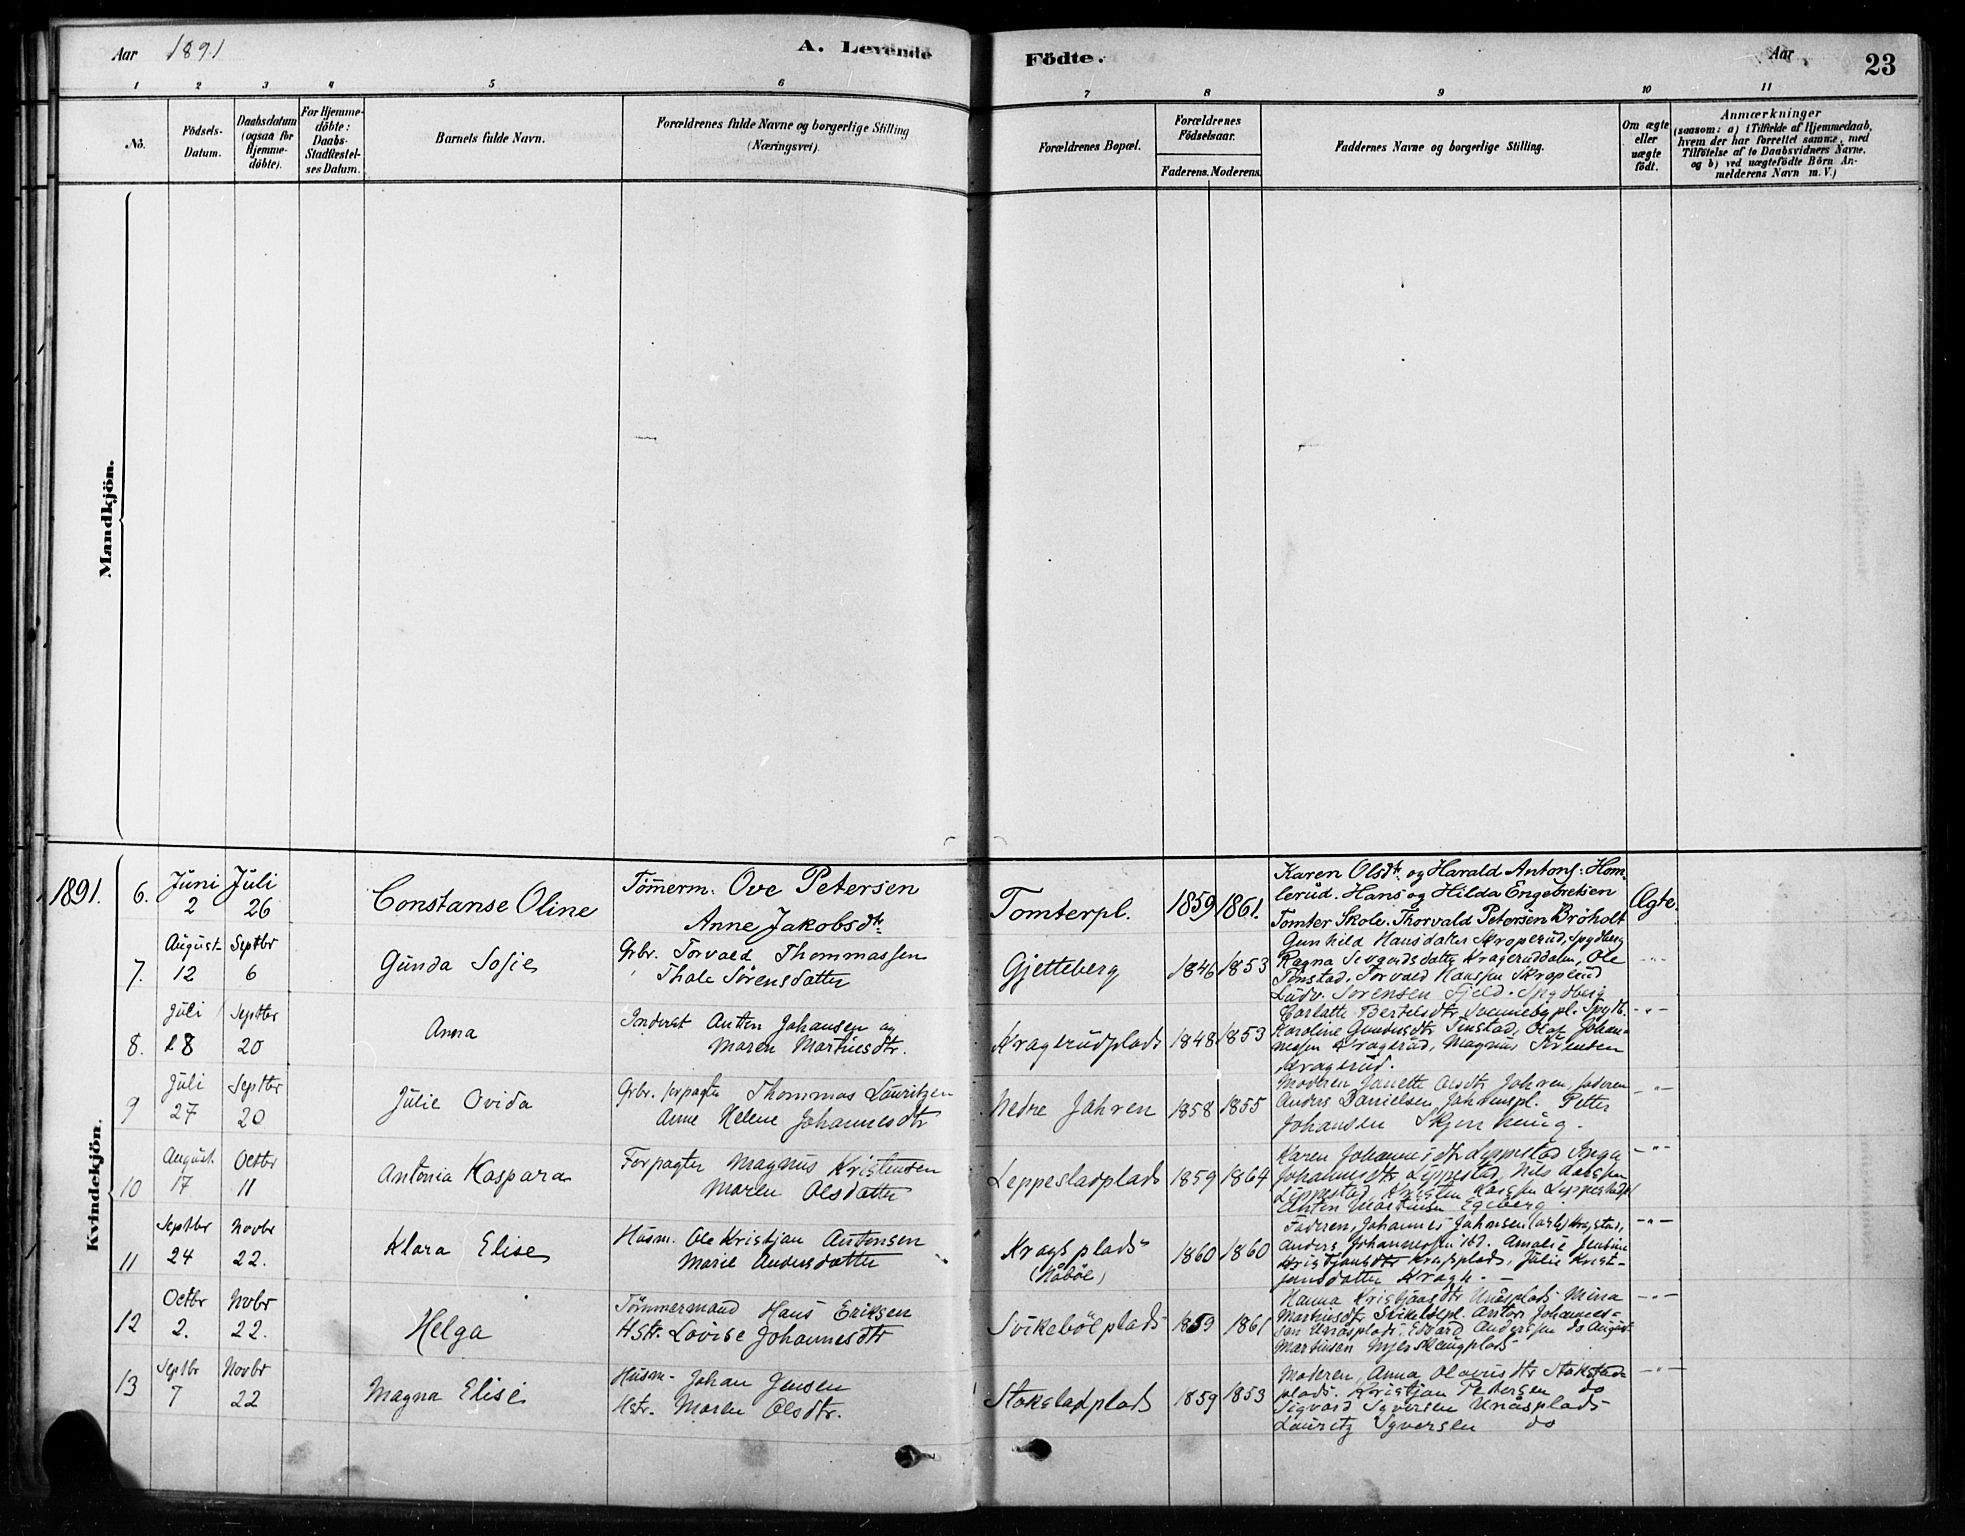 Aar 1891
A. Levende Födte.
Aar
23
1 2 3 4 5 6 7 8 9 10 11
No.
Födsels-
Datum.
Daabsdatum
(ogsaa för
Hjemme-
döbte).
For Hjemme-
döbte:
Daabs-
Stadfæstel-
ses Datum.
Barnets fulde Navn.
Forældrenes fulde Navne og borgerlige Stilling
(Næringsvei).
Forældrenes Bopæl.
Forældrenes
Födselsaar.
Faderens. Moderens.
Faddernes Navne og borgerlige Stilling.
Om ægte
eller
uægte
födt.
Anmærkninger
(saasom: a) i Tilfælde af Hjemmedaab,
hvem der har forrettet samme, med
Tilföielse af to Daabsvidners Navne.
og b) ved uægtefödte Börn An-
melderens Navn m. V.)
Mandkjön.
Kvindekjön.
1891.
6.
Juni
2
Juli
26
Constanse Oline
Tömerm. Ove Petersen
Anne Jakobsdtr
Tomterpl.
1859 1861.
Karen Olsdtr og Harald Antons. Hom-
lerud. Hans og Hilda Engebretsen
Tomter Skole. Thorvald Petersen Bröholt
Ægte.
7.
August
12
Septbr
6
Gunda Sofie
Grbr. Torvald Thommassen
Thale Sörensdatter
Gjetteberg
1846 1853
Gunhild Hansdatter Skroperud, Spydberg
Ragna Sivgurdsdatter Krageruddalen, Ole
Tinstad, Torvald Hanssen Skroperud
Ludv. Sorensen Fjeld. Spydberg
-"-
8.
Juli
18
Septbr
20
Anna
Inderst Anton Johansen og
Maren Martinsdtr.
Kragerudplads
1848 1853
Karoline Gundersdtr Tinstad, Olaf Johan-
nessen Kragerud, Magnus
Kragerud.
-"-
9
Juli
27
Septbr
20
Julie Ovida
Grbr. forpagter Thommas Lauritzen
Anne Helene Johannesdtr
Nedre Jahren
1858 1855
Moderen, Janette Olsdtr Jahren, faderen
Anders Danielsen, Jahrenspl. Petter
Johansen
-"-
10
August
17
Octbr
11
Antonia Kaspara
Forpagter Magnus Kristensen
Maren Olsdatter
Leppestadplads
1859 1864
Karen Johannesdtr Leppestad Inga
Johannesdtr Leppestad, Nils Aanssen
Leppestad, Kristen Leppestadpl
Anton Martinsen Egeberg
-"-
11
Septbr
24
Novbr
22.
Klara Elise
Husm. Ole Kristjan Antonsen
Marie Andersdatter
Kragsplads
(Nåböl)
1860 1860
Faderen, Johannes Johnsen (arb) Kragstad,
Anders Johannessen ibd. Amalie Jensine
Kristjansdtr Kragsplads, Julie Krist-
jansdatter Kragh. -
-"-
12
Octbr
2.
Novbr
22.
Helga
Tömmermand Hans Eriksen
Hstr. Lovise Johannesdtr
Svikeböeplads
1859 1861
Hanna Kristjansdtr Unåsplads Mina
Martinsdtr Svikeböepl. Anton Johannes-
sen Unåsplads, Edvard Anderssen do August
Martinsen
-"-
13
Septbr
7
Novbr
22
Magna Elise
Husm. Johan Jensen
Hstr. Maren Olsdtr.
Stokstadplads
1859 1853
Moderen, Anna Olavusdtr Stokstad-
plads. Kristjan Pedersen do
Sigvard Syversen Unåsplads
Lauritz Syversen do
-"-